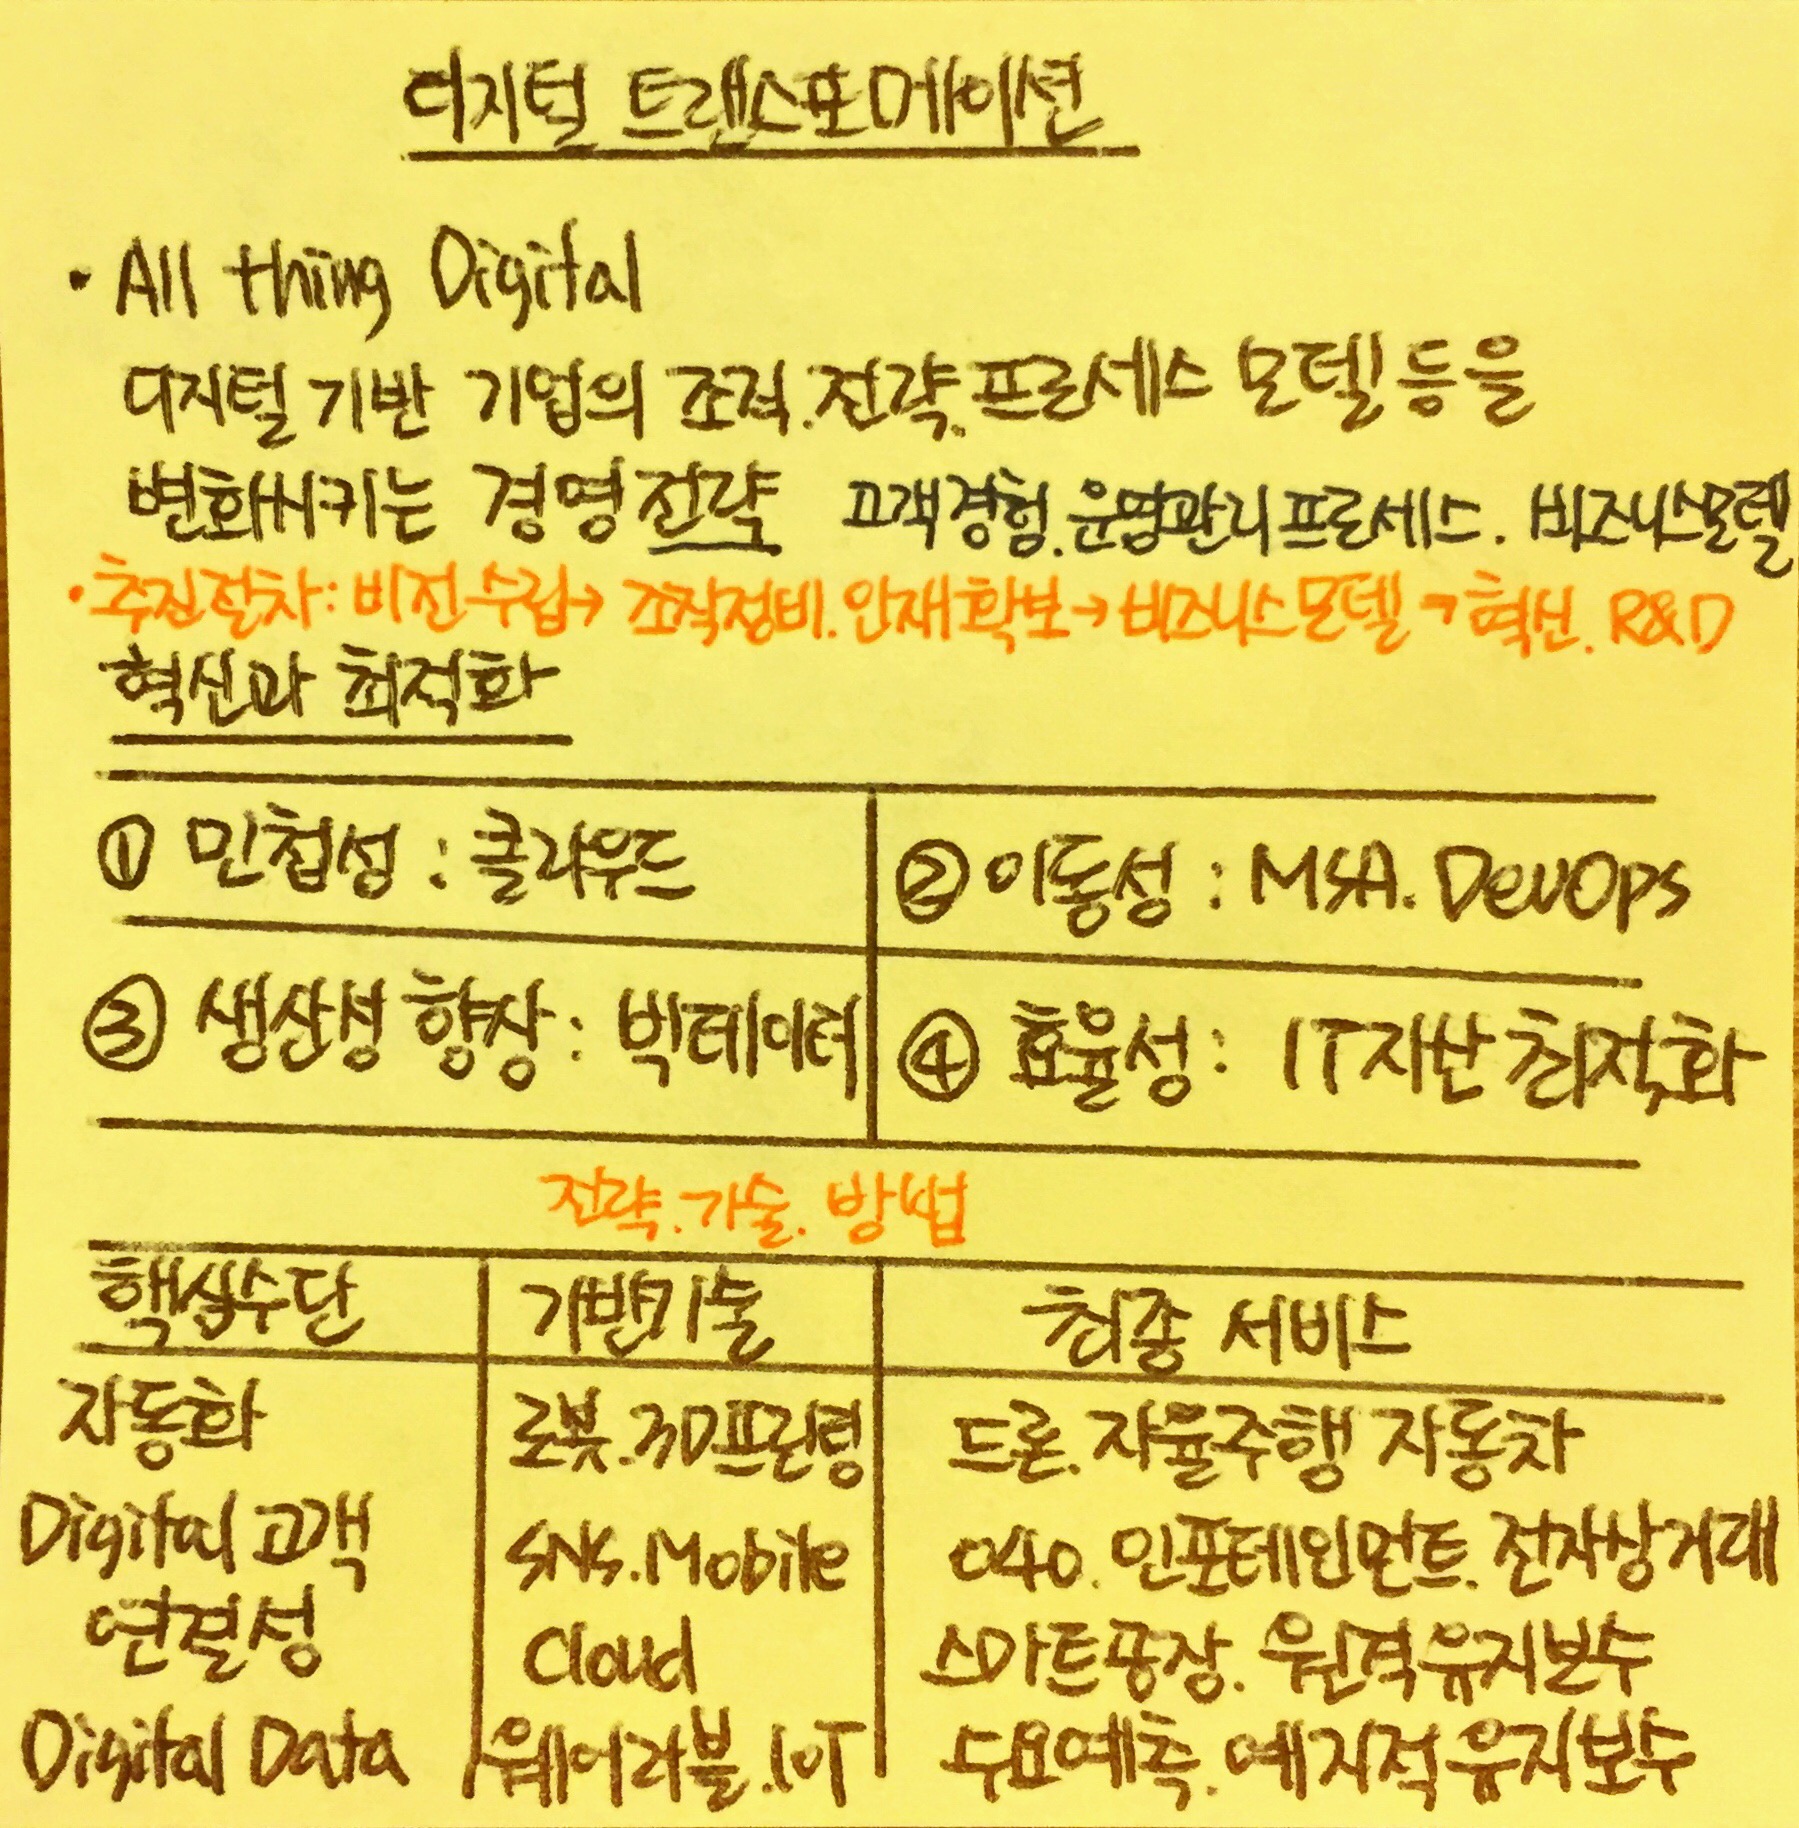 디지털 트랜스포메이션
· All thing Digital
디지털 기반 기업의 조직.전략.프로세스 모델 등을
변화시키는 경영전략 고객경험.운영관리프로세스.비즈니스모델
· 추진절차: 비전수립→ 조직정비.인재확보→비즈니스모델→혁신.R&D
혁신과 최적화
① 민첩성 : 클라우드 ② 이동성 : MSA.DevOps
③ 생산성 향상 : 빅데이터 ④ 효율성 : IT자산최적화
전략.기술.방법
핵심수단 기반기술 최종 서비스
자동화 로봇.3D프린팅 드론.자율주행 자동차
Digital 고객 SNS.Mobile O4O.인포테인먼트.전자상거래
연결성 Cloud 스마트공장.원격유지보수
Digital Data 웨어러블.IoT 수요예측.예지적유지보수